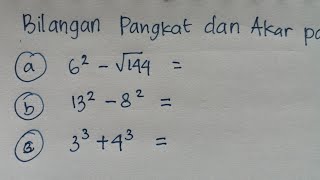 Bilangan Pangkat dan Akar pa
a 6² - √144 =
b 13² - 8² =
c 3³ + 4³ =